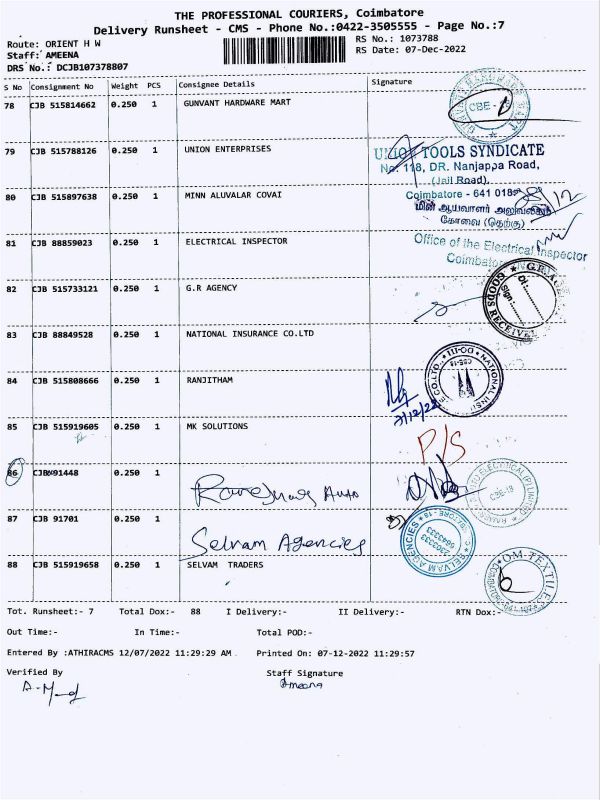 THE PROFESSIONAL COURIERS, Coimbatore
Delivery Runsheet - CMS - Phone No.:0422-3505555 - Page No.:7
Route: ORIENT H W
RS No.: 1073788
Staff: AMEENA
RS Date: 07-Dec-2022
DRS No.: DCJB107378807
S No Consignment No Weight PCS Consignee Details Signature
78 CJB 515814662 0.250 1 GUNVANT HARDWARE MART
CBE -
79 CJB 515788126 0.250 1 UNION ENTERPRISES
UNION TOOLS SYNDICATE
No. 118, DR. Nanjappa Road,
(Jail Road),
Coimbatore - 641 018
80 CJB 515897638 0.250 1 MINN ALUVALAR COVAI
மின் ஆய்வாளர் அலுவலகம்
கோவை (தெற்கு)
81 CJB 88859023 0.250 1 ELECTRICAL INSPECTOR
Office of the Electrical Inspector
Coimbatore
82 CJB 515733121 0.250 1 G.R AGENCY
GOODS RECEIVED
Dt:
Sign:
83 CJB 88849528 0.250 1 NATIONAL INSURANCE CO.LTD
84 CJB 515808666 0.250 1 RANJITHAM
7/12/22
85 CJB 515919605 0.250 1 MK SOLUTIONS
P/S
86 CJB 91448 0.250 1
Auto
CBE-18
87 CJB 91701 0.250 1
Selvam Agencies
SELVAM AGENCIES
88 CJB 515919658 0.250 1 SELVAM TRADERS
OM TEXTILES
Tot. Runsheet:- 7 Total Dox:- 88 I Delivery:- II Delivery:- RTN Dox:-
Out Time:- In Time:- Total POD:-
Entered By :ATHIRACMS 12/07/2022 11:29:29 AM Printed On: 07-12-2022 11:29:57
Verified By Staff Signature
Ameena